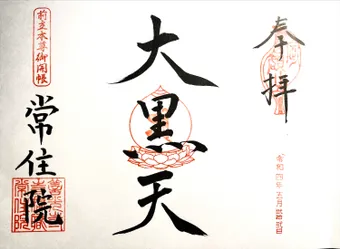 奉拝
令和四年五月
大黒天
前立本尊御開帳
常住院